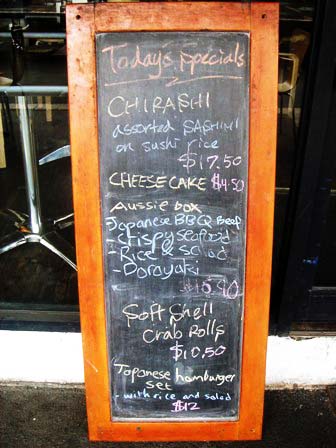 Today's specials
CHIRASHI
assorted SASHIMI
on sushi rice
$17.50
CHEESECAKE $4.50
Aussie box
Japanese BBQ Beef
- crispy seafood
- Rice & Salad
- Dorayaki
Soft Shell
Crab Rolls
$10.50
Japanese hamburger
set
- with rice and salad
$12